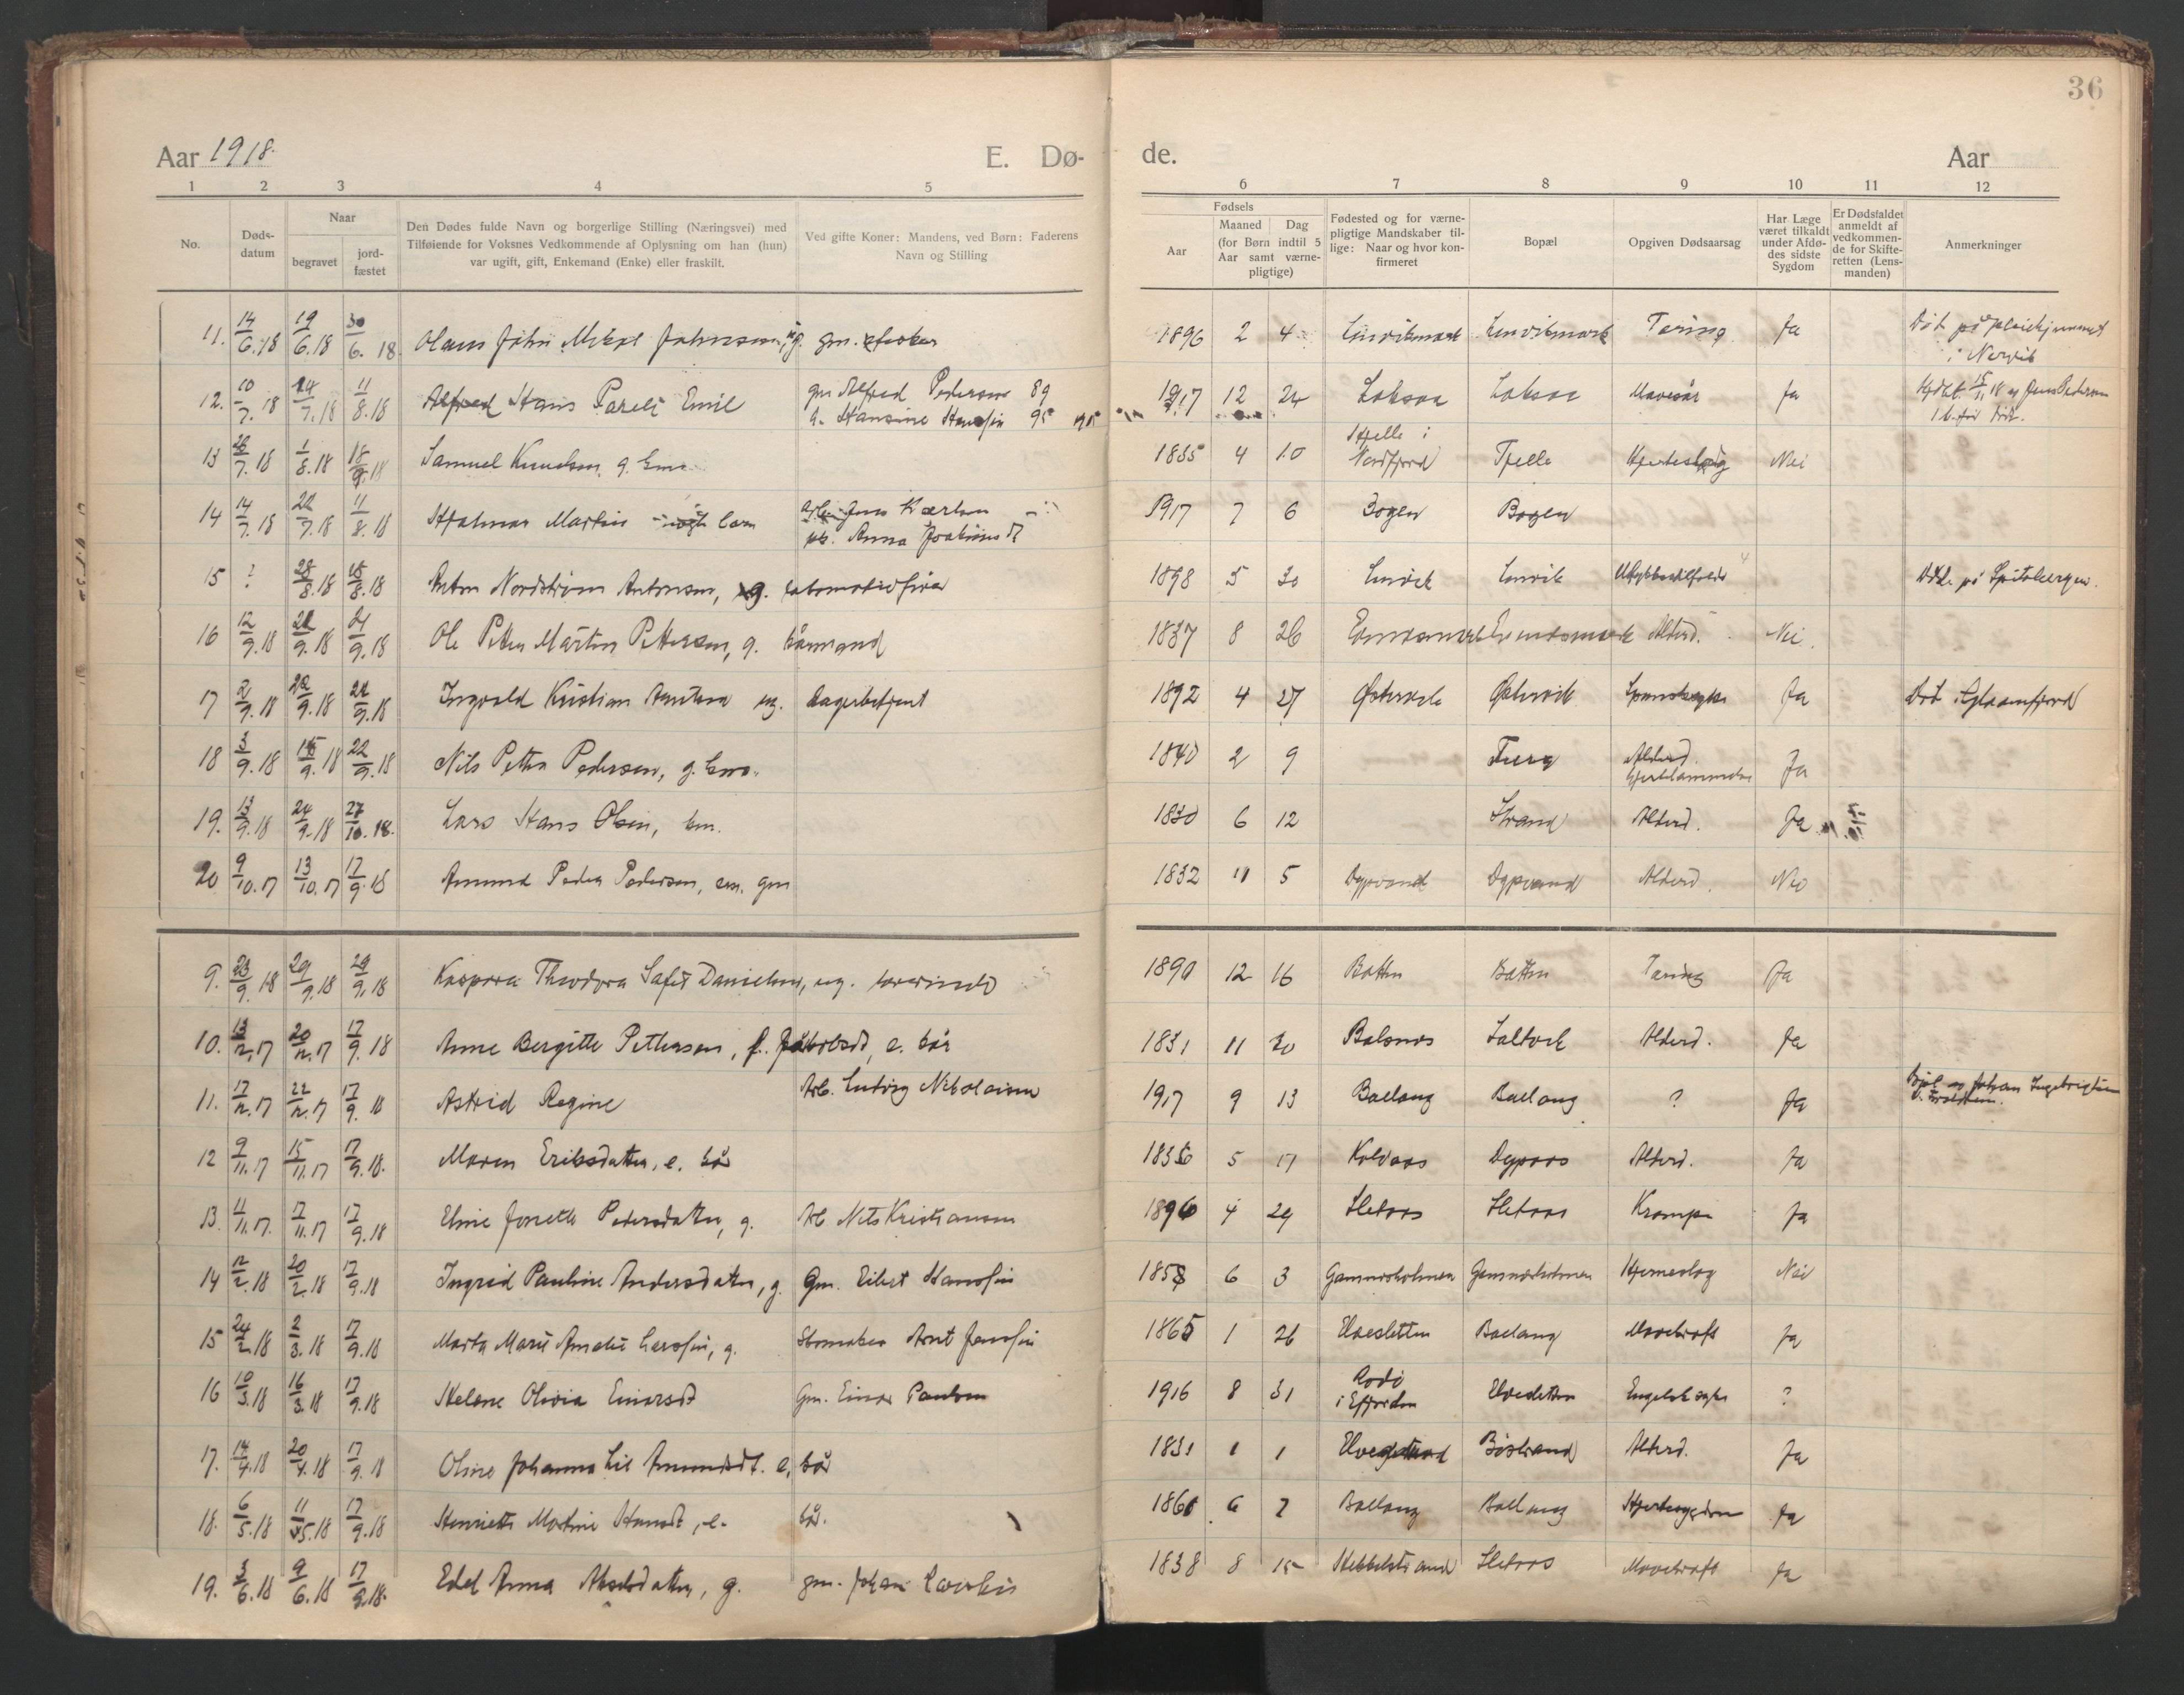 36
Aar 1918. E. Dø- de. Aar
1 2 3 4 5 6 7 8 9 10 11 12
No.
Døds-
datum
Naar
begravet
jord-
fæstet
Den Dødes fulde Navn og borgerlige Stilling (Næringsvei) med
Tilføiende for Voksnes Vedkommende af Oplysning om han (hun)
var ugift, gift, Enkemand (Enke) eller fraskilt.
Ved gifte Koner: Mandens, ved Børn: Faderens
Navn og Stilling
Fødsels
Aar
Maaned
Dag
(for Børn indtil 5
Aar samt værne-
pligtige)
Fødested og for værne-
pligtige Mandskaber til-
lige: Naar og hvor kon-
firmeret
Bopæl
Opgiven Dødsaarsag
Har Læge
været tilkaldt
under Afdø-
des sidste
Sygdom
Er Dødsfaldet
anmeldt af
vedkommen-
de for Skifte-
retten (Lens-
manden)
Anmerkninger
11. 14/6.18 19/6.18 30/6.18. Olaus John Mikal Johnsen, ug. 1896 2 4 Lenvikmark Lenvikmark Tæring Ja Død på pleiehjemmet
i Narvik
12. 10/7.18 14/7.18 11/8.18 Alfred Hans Pareli Emil gm Alfred Pedersen 89
h. Hansine Hansen 95 1917 12 24 Laksaa Laksaa Mavesår Ja
13 26/7.18 1/8.18 18/8.18 Samuel Knudsen, g. 1835 4 10 Hjelle i
Nordfjord Tjelle Hjerteslag Nei
14 14/7.18 21/7.18 11/8.18 Hjalmar Martin Jens Karlsen
Anna Joakimsd. 1917 7 6 Bogen Bogen
15 ? 28/8.18 18/8.18 Anton Nordstrøm Antonsen, ug. lokomotivfører 1898 5 30 Lenvik Lenvik Ulykkestilfælde Døde på Spitsbergen.
16 12/9.18 21/9.18 21/9.18 Ole Petter Martin Pettersen, g. kårmand 1837 8 26 Evindsmark Alderd. Nei.
17 2/9.18 22/9.18 22/9.18 Ingvald Kristian ug. Lagerbetjent 1892 4 27 Østervik Østervik Spanskesyke Ja Død i Glaamfjord
18 3/9.18 15/9.18 22/9.18 Nils Petter Pedersen, g. 1840 2 9 Alderd.
Hjertelammelse Ja
19. 13/9.18 24/9.18 27/10.18. Lars Hans Olsen, em. 1830 6 12 Strand Alderd. Ja
20 9/10.17 13/10.17 17/9.18 Amund Peder Pedersen, em. gm 1832 11 5 Dypvand Dypvand Alderd. Nei
9. 23/9.18 29/9.18 29/9.18 Kaspara Theodora Danielsen, ug. 1890 12 16 Botten Botten Tæring Ja
10. 13/12.17 20/12.17 17/9.18 Anne Bergitte Pettersen, f. Jakobsd, e. kår 1831 11 30 Balsnes Saltvik Alderd. Ja
11. 17/12.17 22/12.17 17/9.18 Astrid Regine Arb. Ludvig Nikolaisen 1917 9 13 Ballang Ballang ? Ja Johan Ingebrigtsen
12 9/11.17 15/11.17 17/9.18. Maren Eriksdatter, e. kår 1836 5 17 Kolvaas Dypaas Alderd. Ja
13. 11/11.17. 17/11.17 17/9.18 Eline Jonetta Pedersdatter, g. Arb Nils Kristiansen 1896 4 29 Sletaas Sletaas Krampe Ja
14 12/2.18 20/2.18 17/9.18 Ingrid Pauline Andersdatter, g. Gm. Eilert Hansen 1858 6 3 Gammesholmen Gammesholmen Hjerneslag Nei
15 24/2.18 2/3.18 17/9.18 Marta Marie Amalie Larsen, g. Skomaker Arnt Jensen 1865 1 26 Elvesletten Ballang Mavekræft Ja
16 10/3.18 16/3.18 17/9.18 Helene Olivia Einarsd. Gm. Einar Paulsen 1916 8 31
i Efjorden Elvesletten Engelsk syke ?
17. 14/4.18 20/4.18 17/9.18 Oline Johanna Lie Amundsd. e. kår 1831 1 1 Elvegstrand Bøstrand Alderd. Ja
18. 6/5.18 11/5.18 17/9.18 Henriette Martine Hansd., e. kår. 1861 6 7 Ballang Ballang Hjertesygdom Ja
19. 3/6.18 9/6.18 17/9.18. Edel Anna Akseldatter, g. gm. Johan 1838 8 15 Skebbelstrand Sletaas Mavekræft Ja